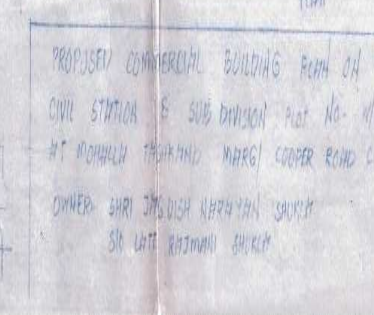 PLAN
PROPOSED COMMERCIAL BUILDING PLAN ON
CIVIL STATION & SUB DIVISION PLOT NO-
AT MOHALLA TASHKAND MARG/ COOPER ROAD
OWNER- SHRI JAGDISH NARAYAN SHUKLA
S/O LATE RAJMANI SHUKLA